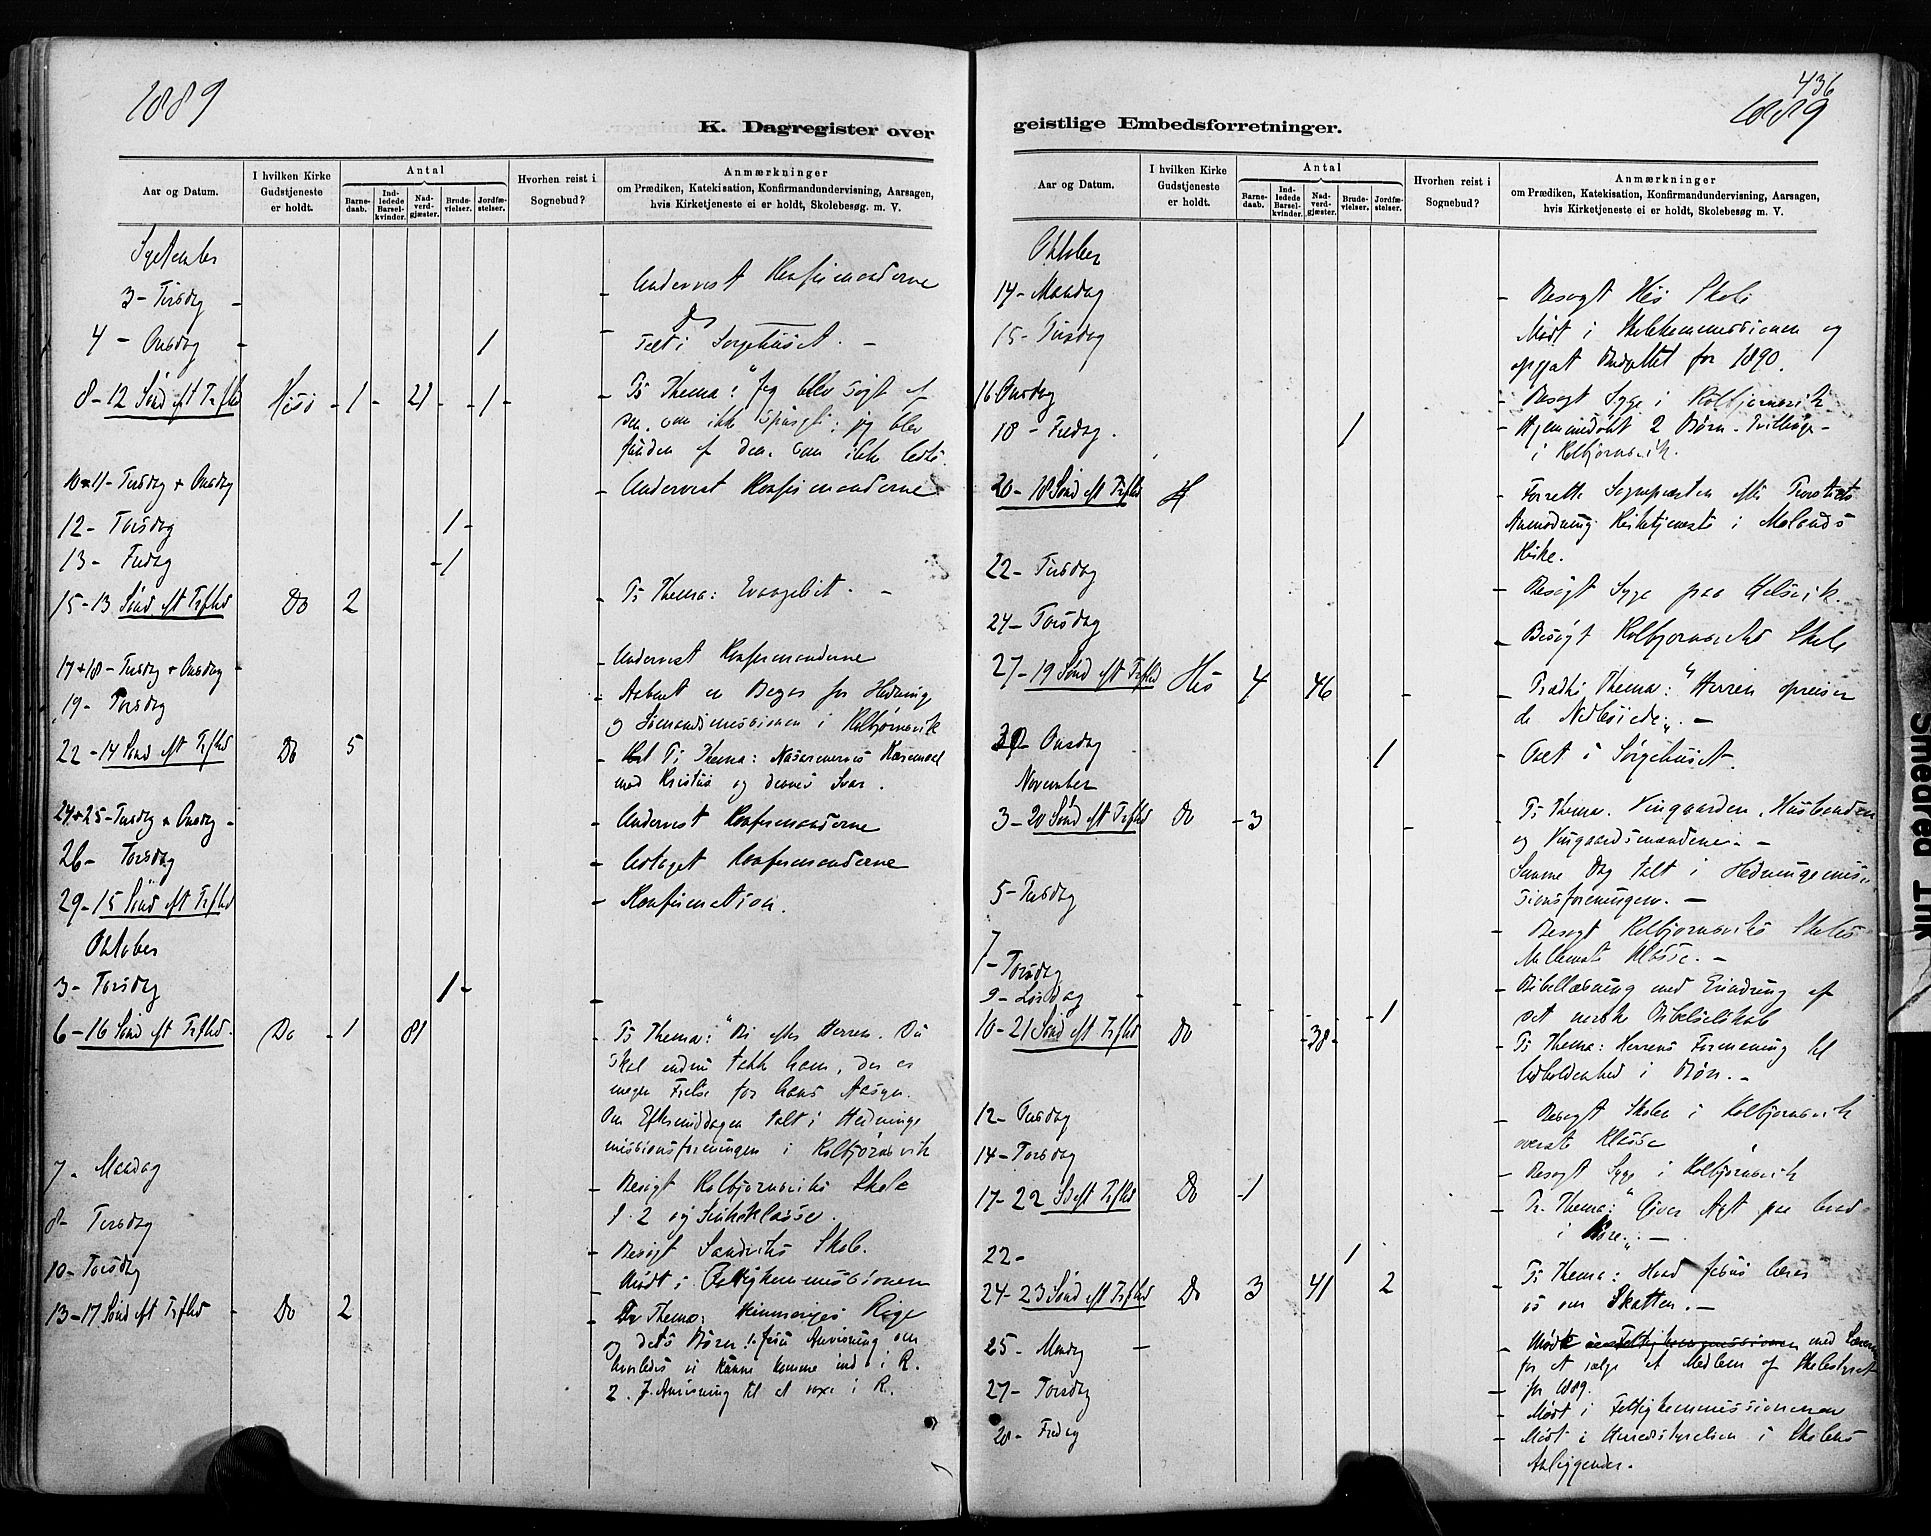 1889
K. Dagregister over
Aar og Datum.
I hvilken Kirke Gudstjeneste er holdt.
Antal
Barnedaab.
Indledede Barselkvinder.
Nadverdgjæster.
Brudevielser.
Jordfæstelser.
Hvorhen reist i Sognebud?
Anmærkninger
om Prædiken, Katekisation, Konfirmandundervisning, Aarsagen,
hvis Kirketjeneste ei er holdt, Skolebesøg m. V.
September
3 - Tirsdag - Undervist Konfirmanderne
4 - Onsdag - 1 - Talt i Sørgehuset. -
8 - 12 Sönd eft Trfhd Hisö - 1 - 21 - - 1 - - Ts Thema: "Jeg blev søgt af
den, som ikke spurgte; jeg blev
funden af den, som ikke ledte.
10 + 11 - Tirsdag + Onsdag - Undervist Konfirmanderne
12 - Torsdag 1 -
13 - Fredag - 1
15 - 13 Sönd eft Trfhd Do 2 - Ts Thema: Evangeliet. -
17 + 18 - Tirsdag + Onsdag - - Undervist Konfirmanderne
19 - Torsdag - Aabnet en Bazar for Hedning
og Sømandsmissionen i Kolbjørnsvik
22 - 14 Sönd eft Trfhd Do 5 - Ts Thema:
med Kristus og dennes Svar.
24 + 25 - Tirsdag + Onsdag - - Undervist Konfirmanderne
26 - Torsdag - Udtaget Konfirmanderne
29 - 15 Sönd eft Trfhd - Konfirmation.
Oktober
3 - Torsdag 1 - -
6 - 16 Sönd eft Trfhd - Do - 1 81 - Ts Thema: "Bi efter Herren. Du
skal endnu takke ham, der er
megen Frelse for hans Aasyn.
Om Eftermiddagen talt i Hedninge
missionsforeningen i Kolbjørnsvik
7 - Mandag - Besøgt Kolbjørnsviks Skole
1. 2 og Sinkeklasse.
8 - Tirsdag - Besøgt Sandviks Skole.
10 - Torsdag - Mødt i Fattigkommissionen
13 - 17 Sönd eft Trfhd - Do 2 - Thema: Himmeriges Rige
og dets Børn. 1. Jesu Anvisning om
hvorledes vi kunne komme ind i R.
2. J. Anvisning til at voxe i R.
436
1889
geistlige Embedsforretninger.
Aar og Datum.
I hvilken Kirke Gudstjeneste er holdt.
Antal
Barnedaab.
Indledede Barselkvinder.
Nadverdgjæster.
Brudevielser.
Jordfæstelser.
Hvorhen reist i Sognebud?
Anmærkninger
om Prædiken, Katekisation, Konfirmandundervisning, Aarsagen,
hvis Kirketjeneste ei er holdt, Skolebesøg m. V.
Oktober
14 - Mandag - Besøgt His Skole
15 - Tirsdag Mødt i Skolekommissionen og
opgjøt Budgettet for 1890.
16 Onsdag - Besøgt Syge i Kolbjørnsvik
18 - Fredag. 1 - Hjemmedøbt 2 Børn - Tvillinge -
i Kolbjørnsvik.
20 - 18 Sönd eft Trfhd H - Forrette Sognepræsten efter Provstiets
Anmodning Kirketjeneste i Molands
Kirke.
22 - Tirsdag - Besøgt Syge paa Helsvik. -
24 - Torsdag - Besøgt Kolbjørnsviks Skole
27 - 19 Sönd eft Trfhd His 4 46 - - Prædk. Thema: "Herren opreiser
de Nedbøiede". -
30 - Onsdag 1 - Talt i Sørgehuset.
November
3 - 20 Sönd eft Trfhd Do - 3 - - Ts Thema. Vingaarden, Husbonden
og Vingaardsmændene. -
Samme Dag talt i Hedningemis
sionsforeningen. -
5 - Tirsdag - Besøgt Kolbjørnsviks Skoles
Mellemste Klasse. -
7 - Torsdag - Bibellæsning med Erindring af
9 - Lørdag - - - - 1 - det norske Bibelselskab
10 - 21 Sönd eft Trfhd Do - 38 - - Ts Thema: Herrens Formaning til
Udholdenhed i Bøn. -
12 - Tirsdag Besøgt Skolen i Kolbjørnsvik
øverste Klasse
14 - Torsdag - Besøgt Syge i Kolbjørnsvik
17 - 22 S eft Trfhd Do - 1 - Pr. Thema: "Giver Agt paa hvad
i høre". -
22 - 1 -
24 - 23 Sönd eft Trfhd Do 3 41 2 - Ts Thema: Hvad Jesus lærer
os om Skatten. -
25 - Mandag - - Mødt i Fattigkommissionen med
for at vælge et Medlem af Skolestyret
for 1889.
27 - Torsdag - Mødt i Fattigkommissionen
28 - Fredag - Mødt i Herredstyrelsen i Skolens
Anliggender.
Smedred Trk